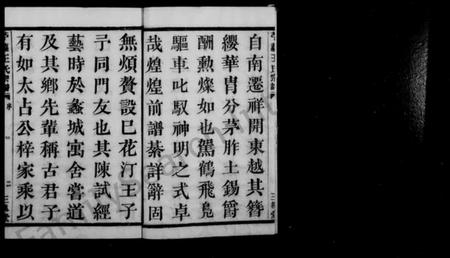 自南遷祥開東越其簪
纓華冑分茅胙土錫爵
酬勲燦如也駕鶴飛鳧
驅車叱馭神明之式卓
哉煌煌前譜綦詳辭固
無煩贅設巳花汀王子
予同門友也其陳試經
藝時於蠡城寓舍嘗道
及其鄉先輩稱古君子
有如太占公梓家乘以